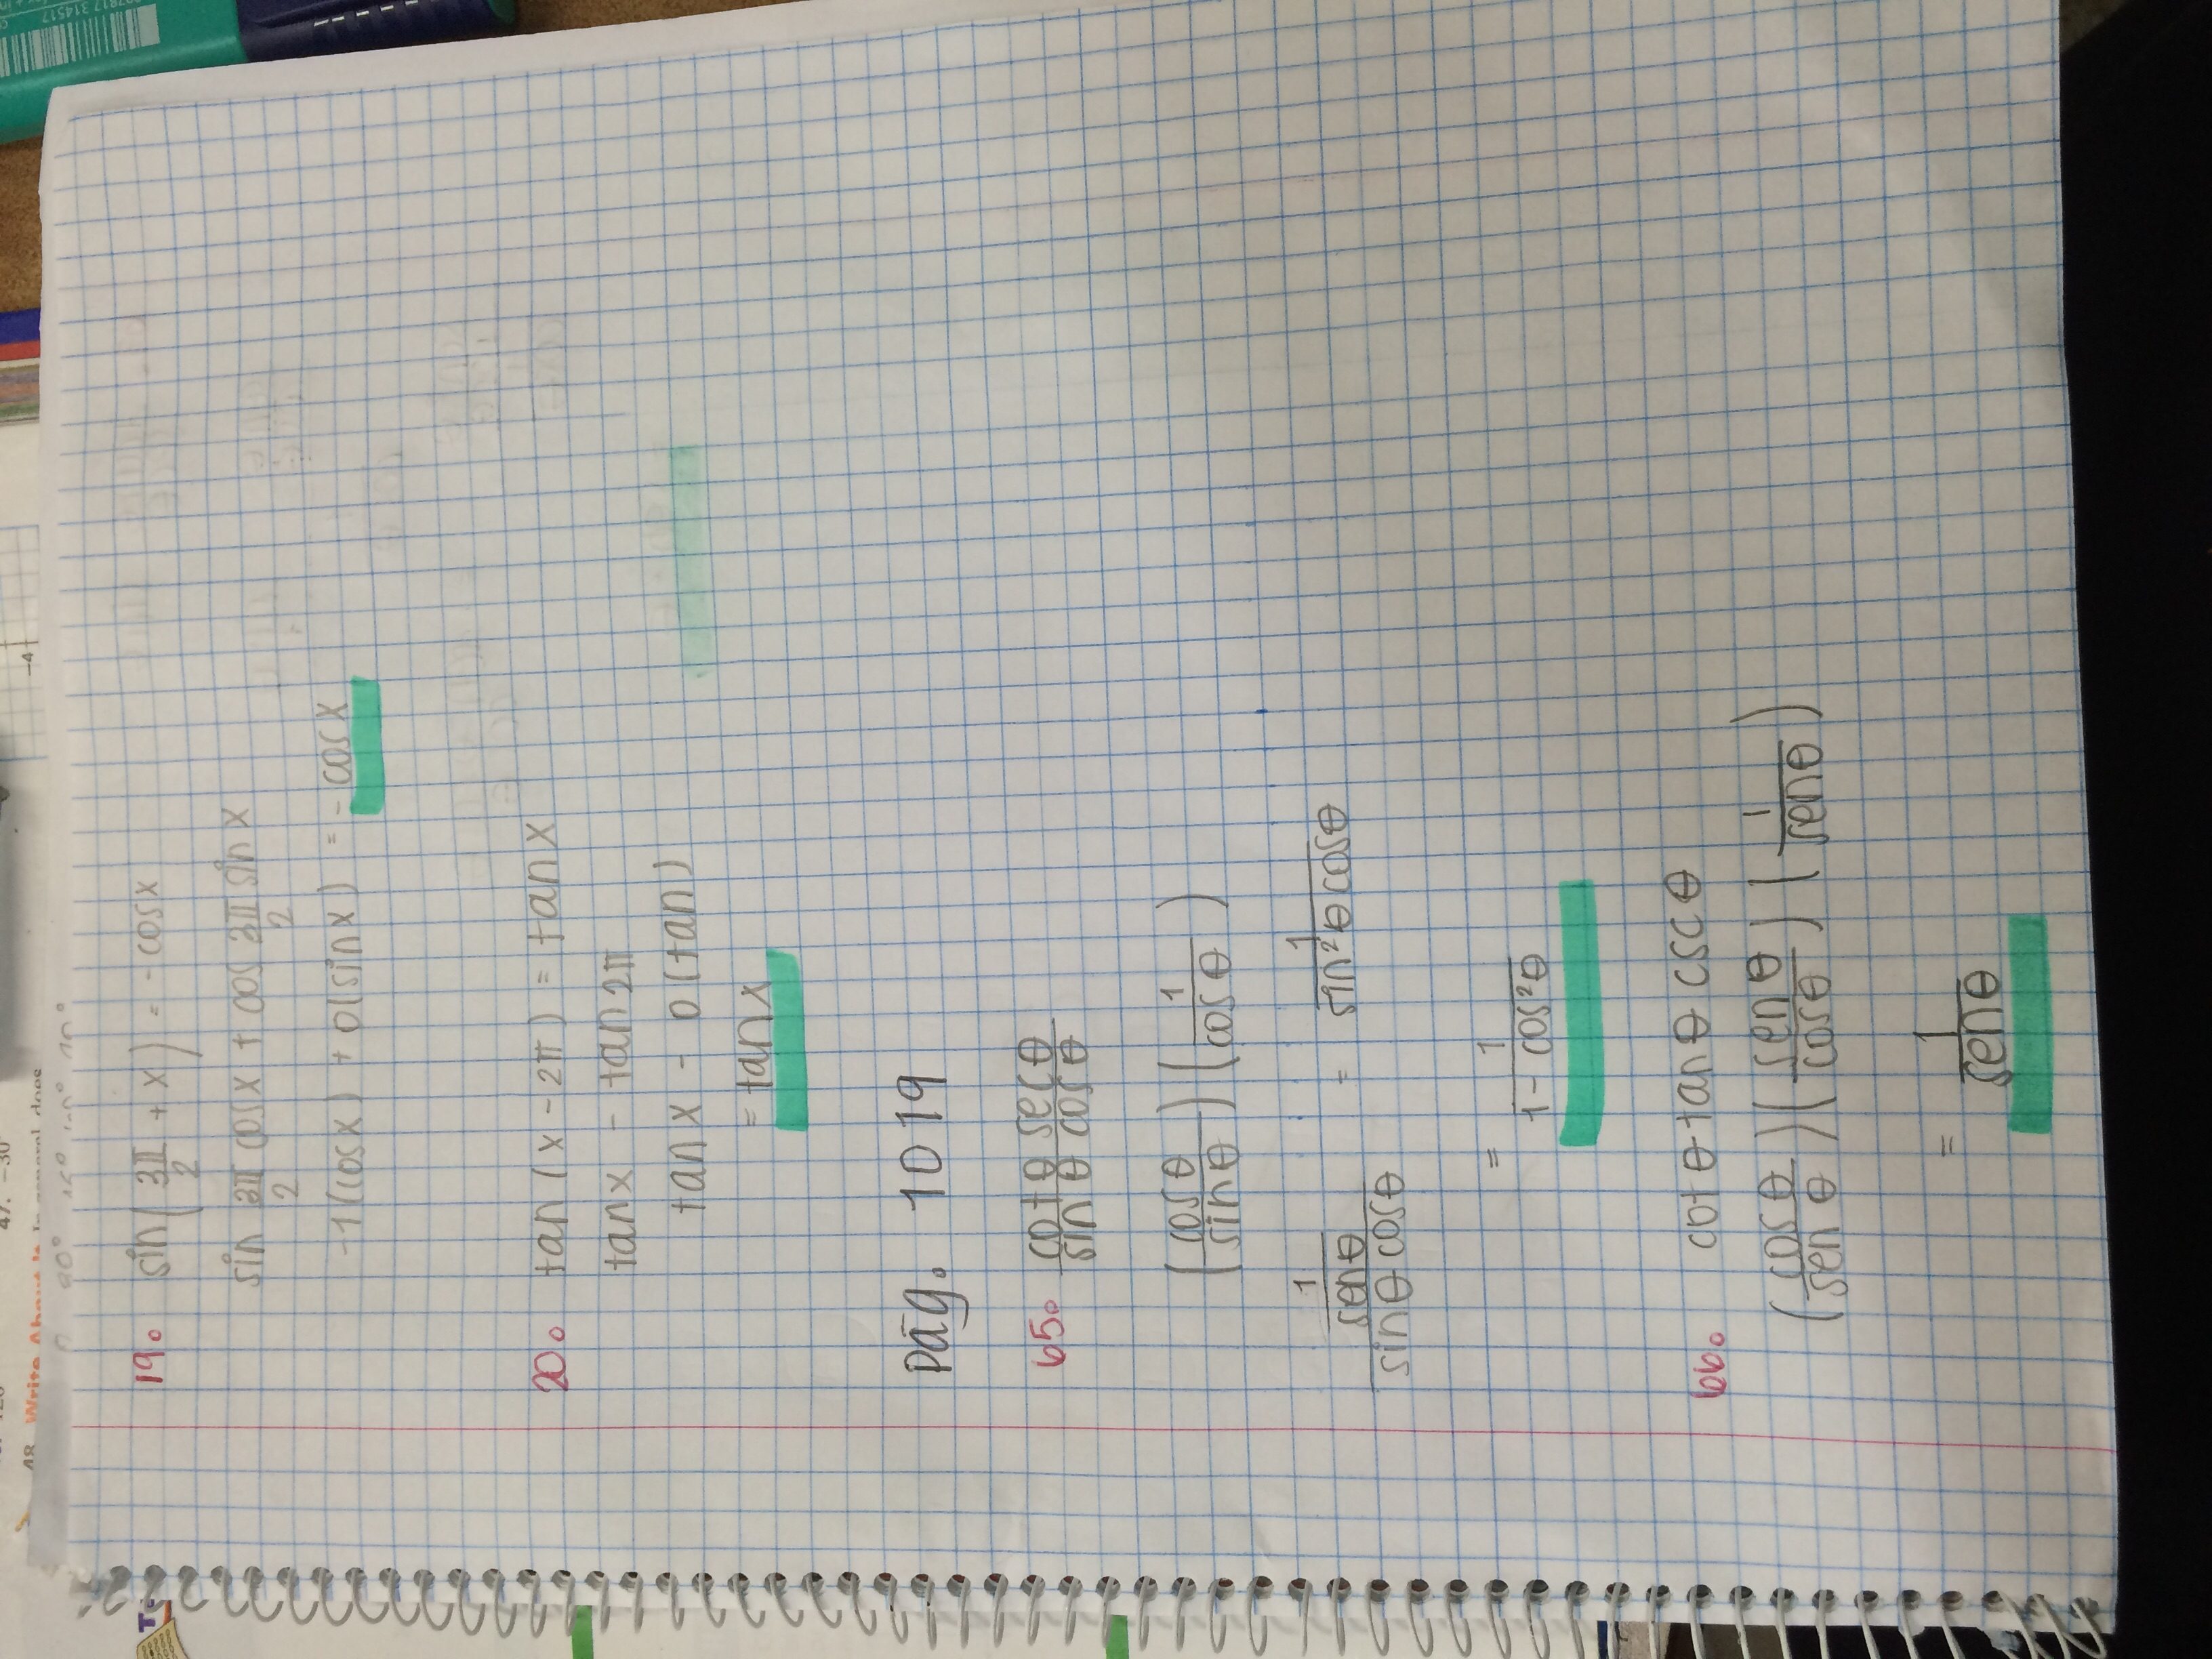 19. sin(3π/2 + x) = - cosx
sin 3π/2 cosx + cos 3π/2 sinx
-1(cosx) + 0(sinx) = - cosx
20. tan(x - 2π) = tanx
tanx - tan2π
tanx - 0(tan)
= tanx
Pág. 1019
65. cotθ secθ / sinθ cosθ
(cosθ/sinθ)(1/cosθ)
1/senθ / sinθ cosθ = 1/sin²θ cosθ
= 1/1 - cos²θ
66. cotθ tanθ cscθ
(cosθ/senθ)(senθ/cosθ)(1/senθ)
= 1/senθ
48. Write About It In general, does
47. -30°
-4
314517